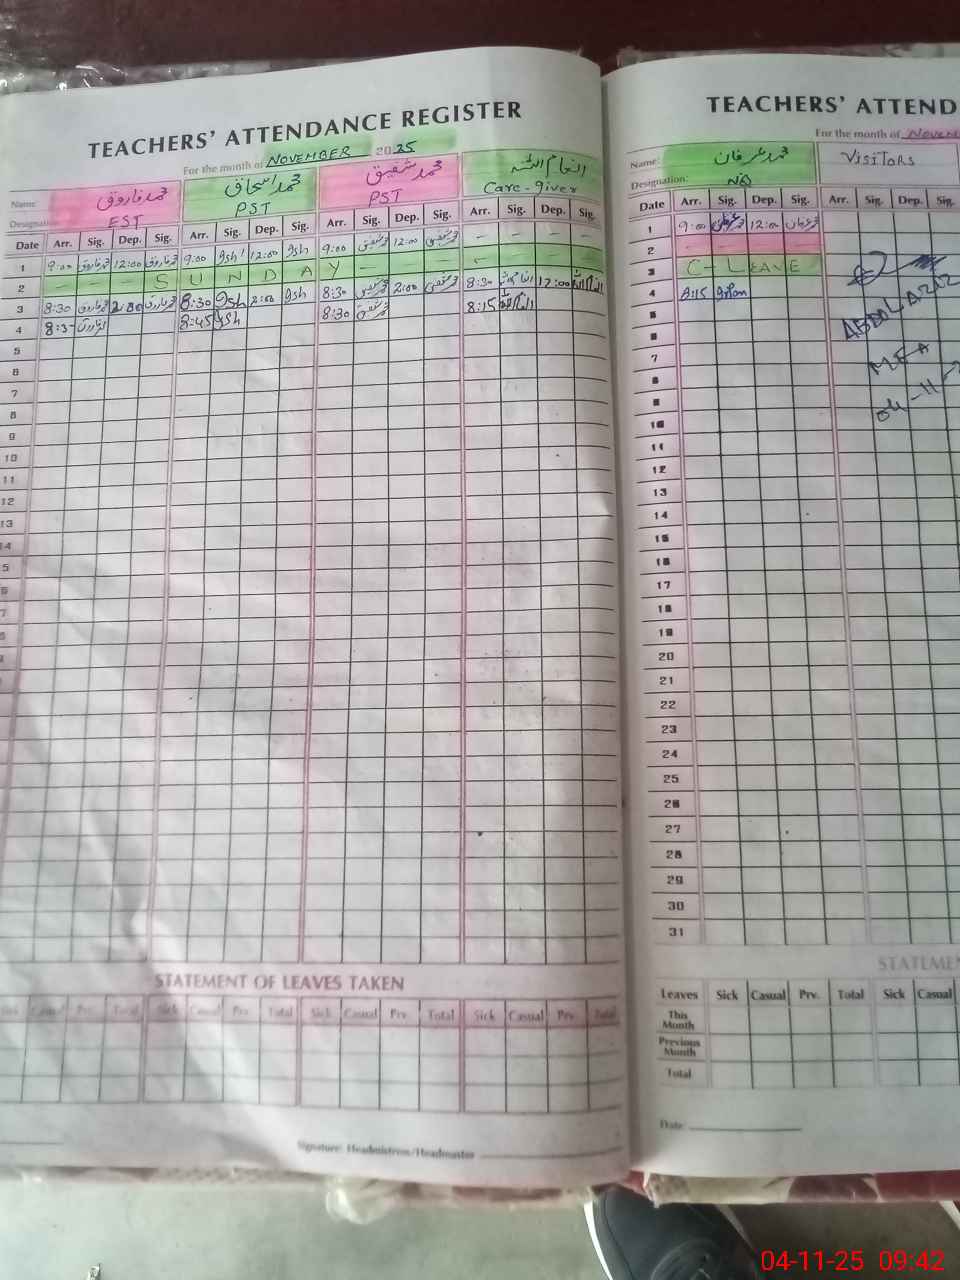 TEACHERS' ATTENDANCE REGISTER
For the month of NOVEMBER 2025
Name محمد فاروق محمد اسحاق محمد شفیق انعام اللہ
Designation EST PST PST Care-giver
Date Arr. Sig. Dep. Sig. Arr. Sig. Dep. Sig. Arr. Sig. Dep. Sig. Arr. Sig. Dep. Sig.
1 9:00 محمد فاروق 12:00 محمد فاروق 9:00 Ish 12:00 Ish 9:00 محمد شفیق 12:00 محمد شفیق - - - -
2 - - - S U N D A Y - - -
3 8:30 محمد فاروق 2:00 محمد فاروق 8:30 Ish 2:00 Ish 8:30 محمد شفیق 2:00 محمد شفیق 8:30 انعام اللہ 12:00 انعام اللہ
4 8:3- محمد فاروق 8:45 Ish 8:30 محمد شفیق 8:15 انعام اللہ
5
6
7
8
9
10
11
12
13
14
5
6
7
8
STATEMENT OF LEAVES TAKEN
Sick Casual Prv. Total Sick Casual Prv. Total Sick Casual Prv. Total Sick Casual Prv. Total
Signature: Headmistress/Headmaster
TEACHERS' ATTEND
For the month of NOVEM
Name: محمد عرفان VISITORS
Designation: NQ
Date Arr. Sig. Dep. Sig. Arr. Sig. Dep. Sig.
1 9:00 محمد عرفان 12:00 محمد عرفان
2 - - - -
3 C - LEAVE
4 8:15
5
6
7
8
9
10
11
12
13
14
15
16
17
18
19
20
21
22
23
24
25
26
27
28
29
30
31
ABDUL AZIZ
MEA
04-11-2
STATEMEN
Leaves Sick Casual Prv. Total Sick Casual
This Month
Previous Month
Total
Date
04-11-25 09:42